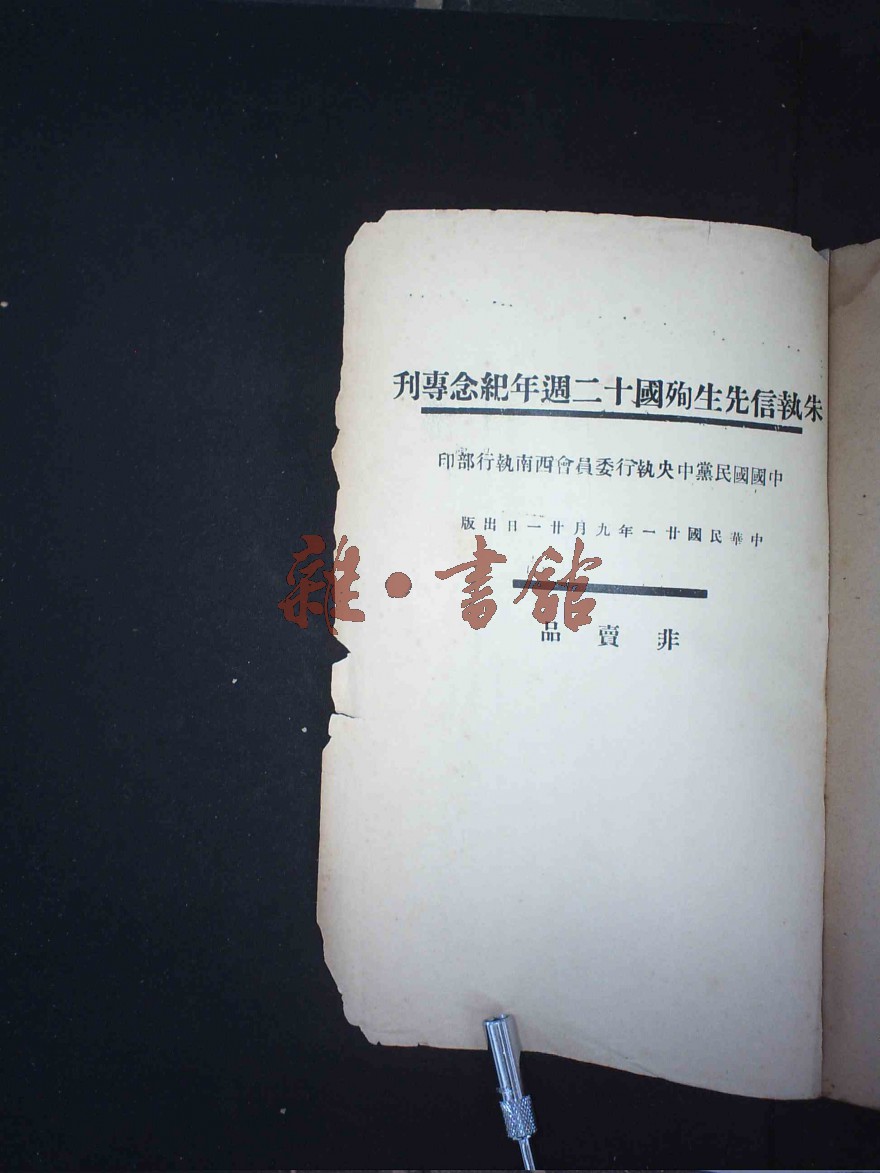 朱執信先生殉國十二週年紀念專刊
中國國民黨中央執行委員會西南執行部印
中華民國廿一年九月廿一日出版
雜·書館
非賣品